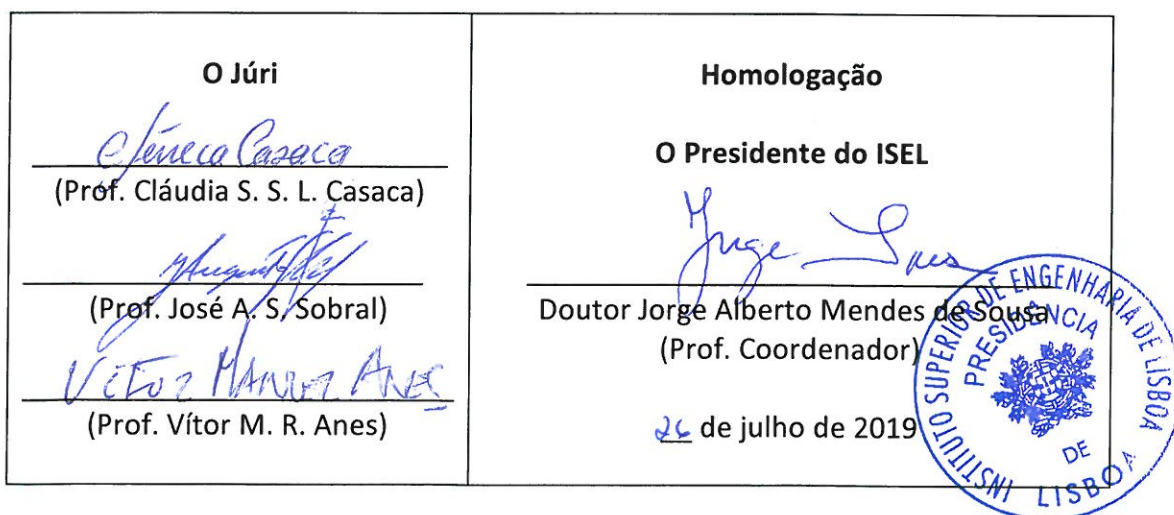 O Júri
Séneca Casaca
(Prof. Cláudia S. S. L. Casaca)
(Prof. José A. S. Sobral)
(Prof. Vítor M. R. Anes)
Homologação
O Presidente do ISEL
Jorge
Doutor Jorge Alberto Mendes de Sousa
(Prof. Coordenador)
26 de julho de 2019
INSTITUTO SUPERIOR DE ENGENHARIA DE LISBOA
PRESIDÊNCIA
DE
LISBOA